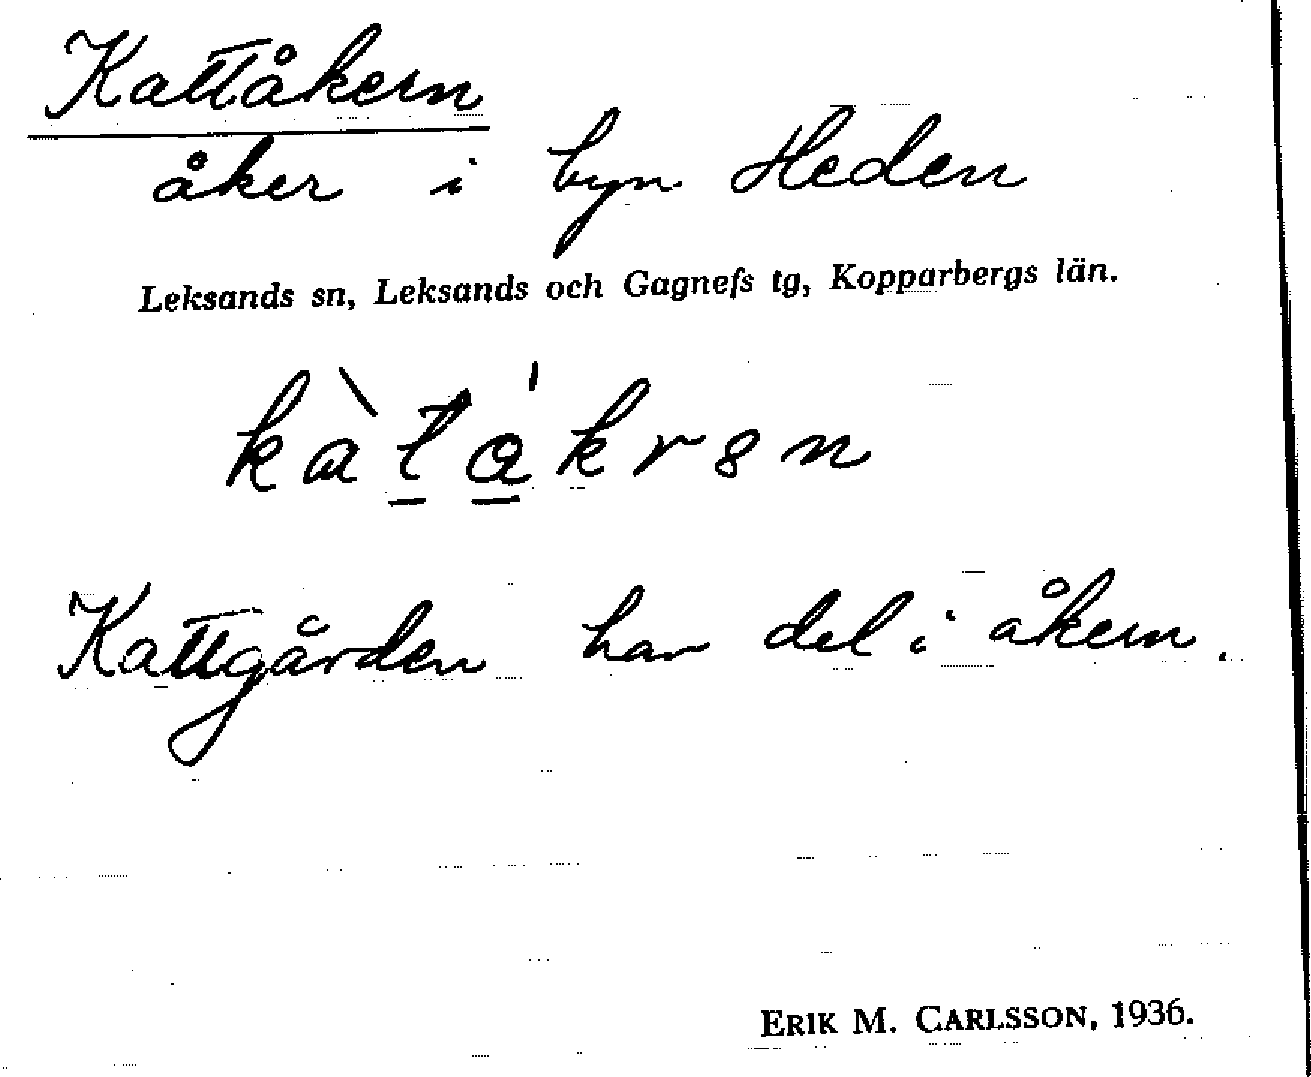 Kattåkern
åker i byn Heden
Leksands sn, Leksands och Gagnefs tg, Kopparbergs län.
Kattgården har del i åkern.
ERIK M. CARLSSON, 1936.